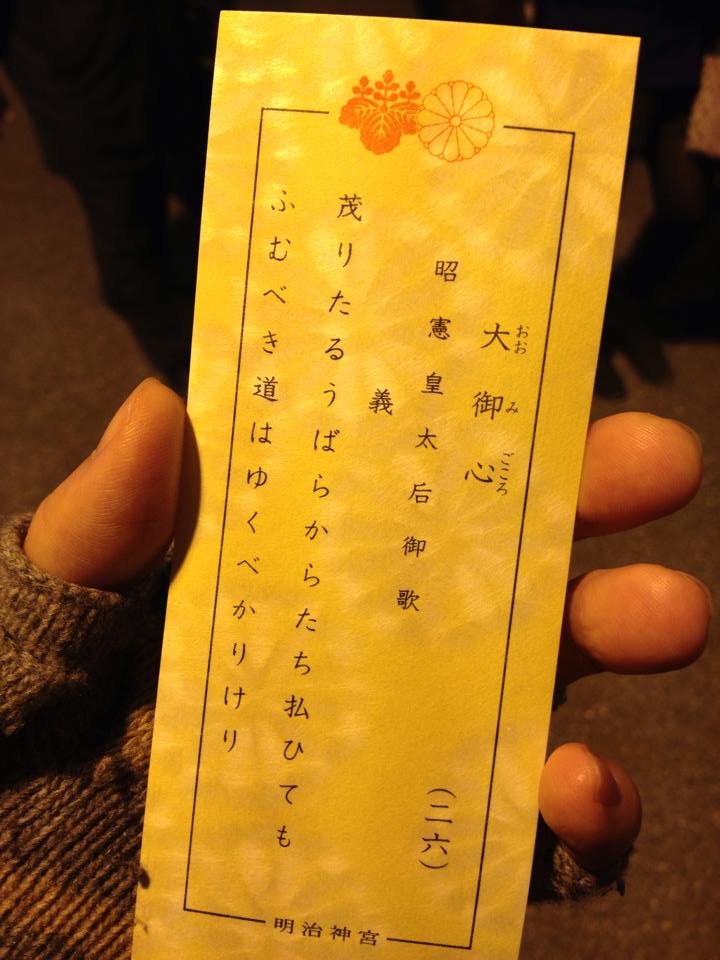 大御心
おおみごころ
昭憲皇太后御歌 (二六)
義
茂りたるうばらからたち払ひても
ふむべき道はゆくべかりけり
明治神宮